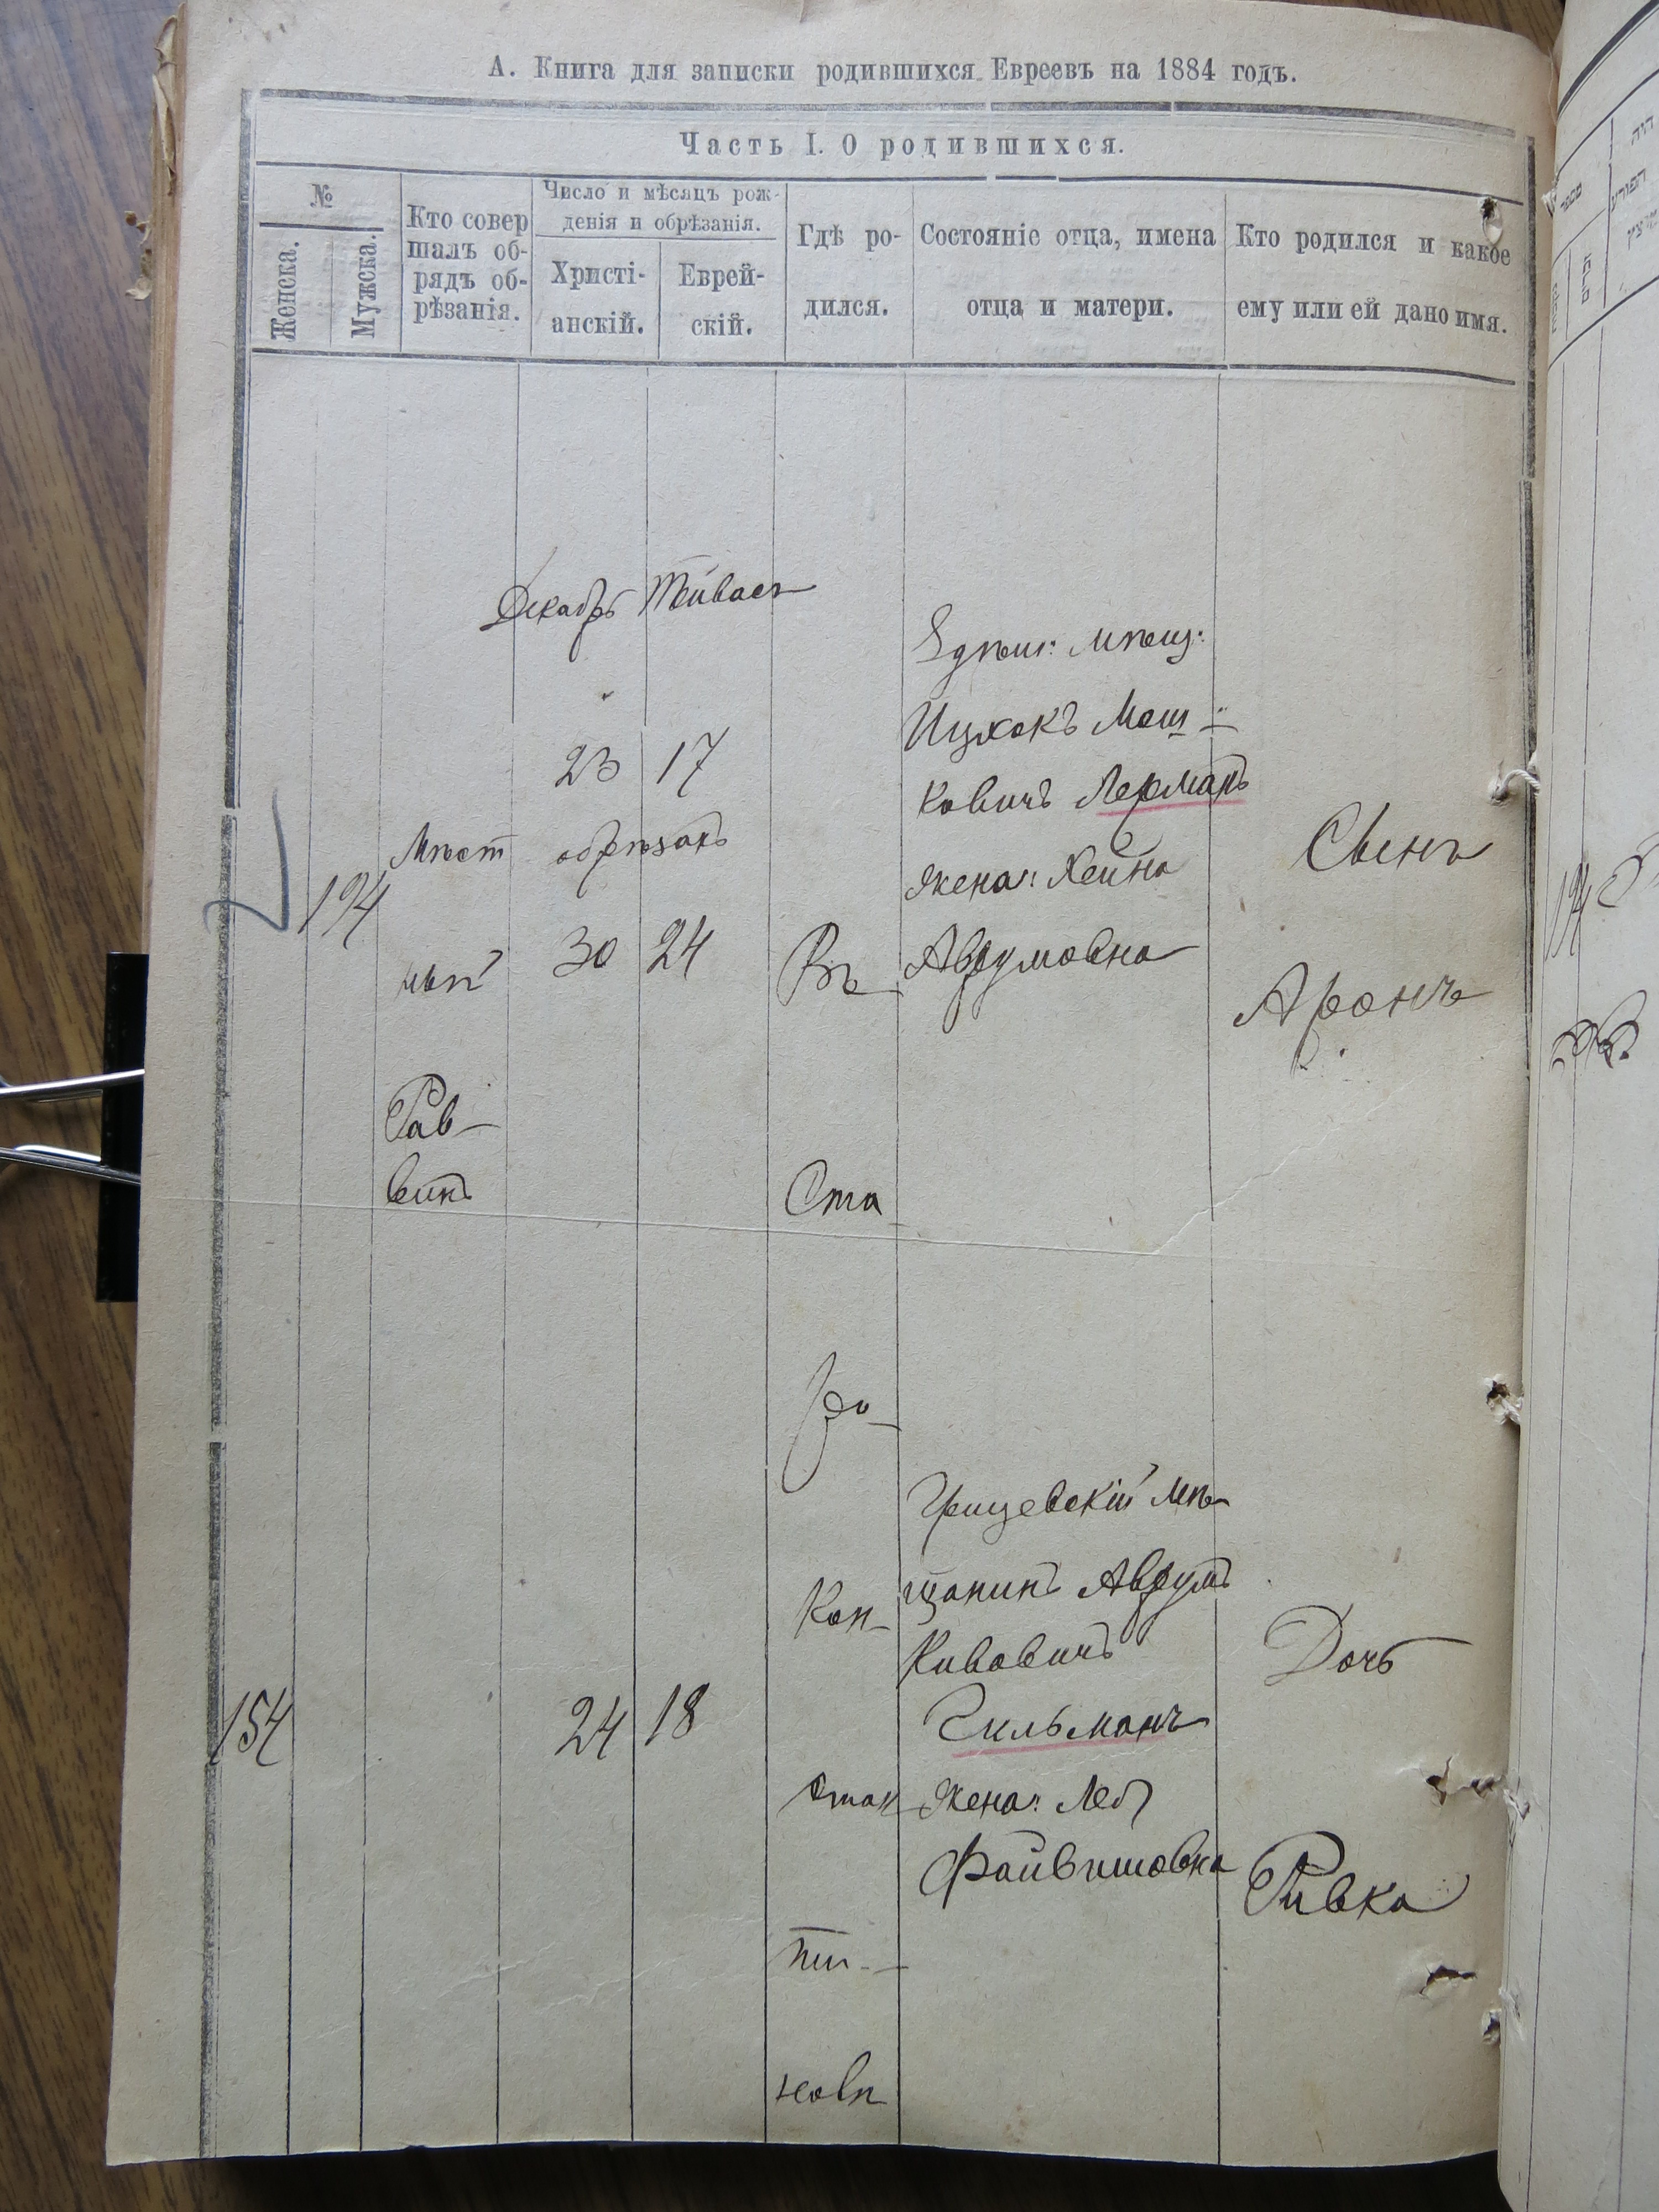 А. Книга для записки родившихся Евреевъ на 1884 годъ.
Часть I. О родившихся.
№
Женска.
Мужска.
Кто совер
шалъ об-
рядъ об-
рѣзанія.
Число и мѣсяцъ рож-
денія и обрѣзанія.
Христі-
анскій.
Еврей-
скій.
Гдѣ ро-
дился.
Состояніе отца, имена
отца и матери.
Кто родился и какое
ему или ей дано имя.
Декабрь Тейвасъ
194
Мѣст
ный
Рав-
винъ
23 17
обрѣзанъ
30 24
Въ
Ста
ро-
Кон-
стан
ти-
новѣ
мѣщ:
Ицхокъ Мош-
ковичъ Лерманъ
жена: Хейна
Аврумовна
Сынъ
Аронъ
154
24 18
Грицевскій мѣ
щанинъ Аврумъ
Кивовичъ
Гильманъ
жена: Лея
Файвишовна
Дочь
Ривка
194